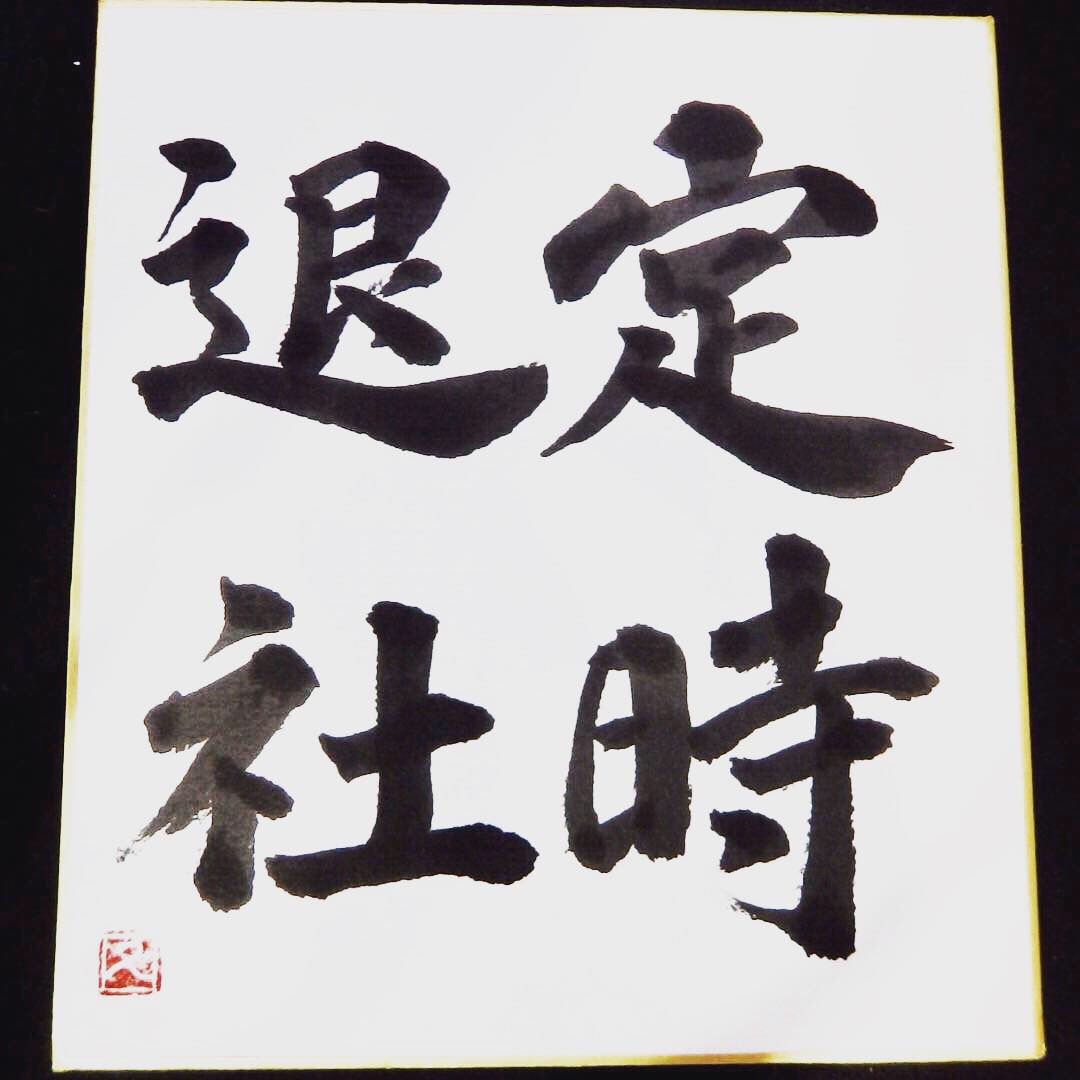 定時
退社